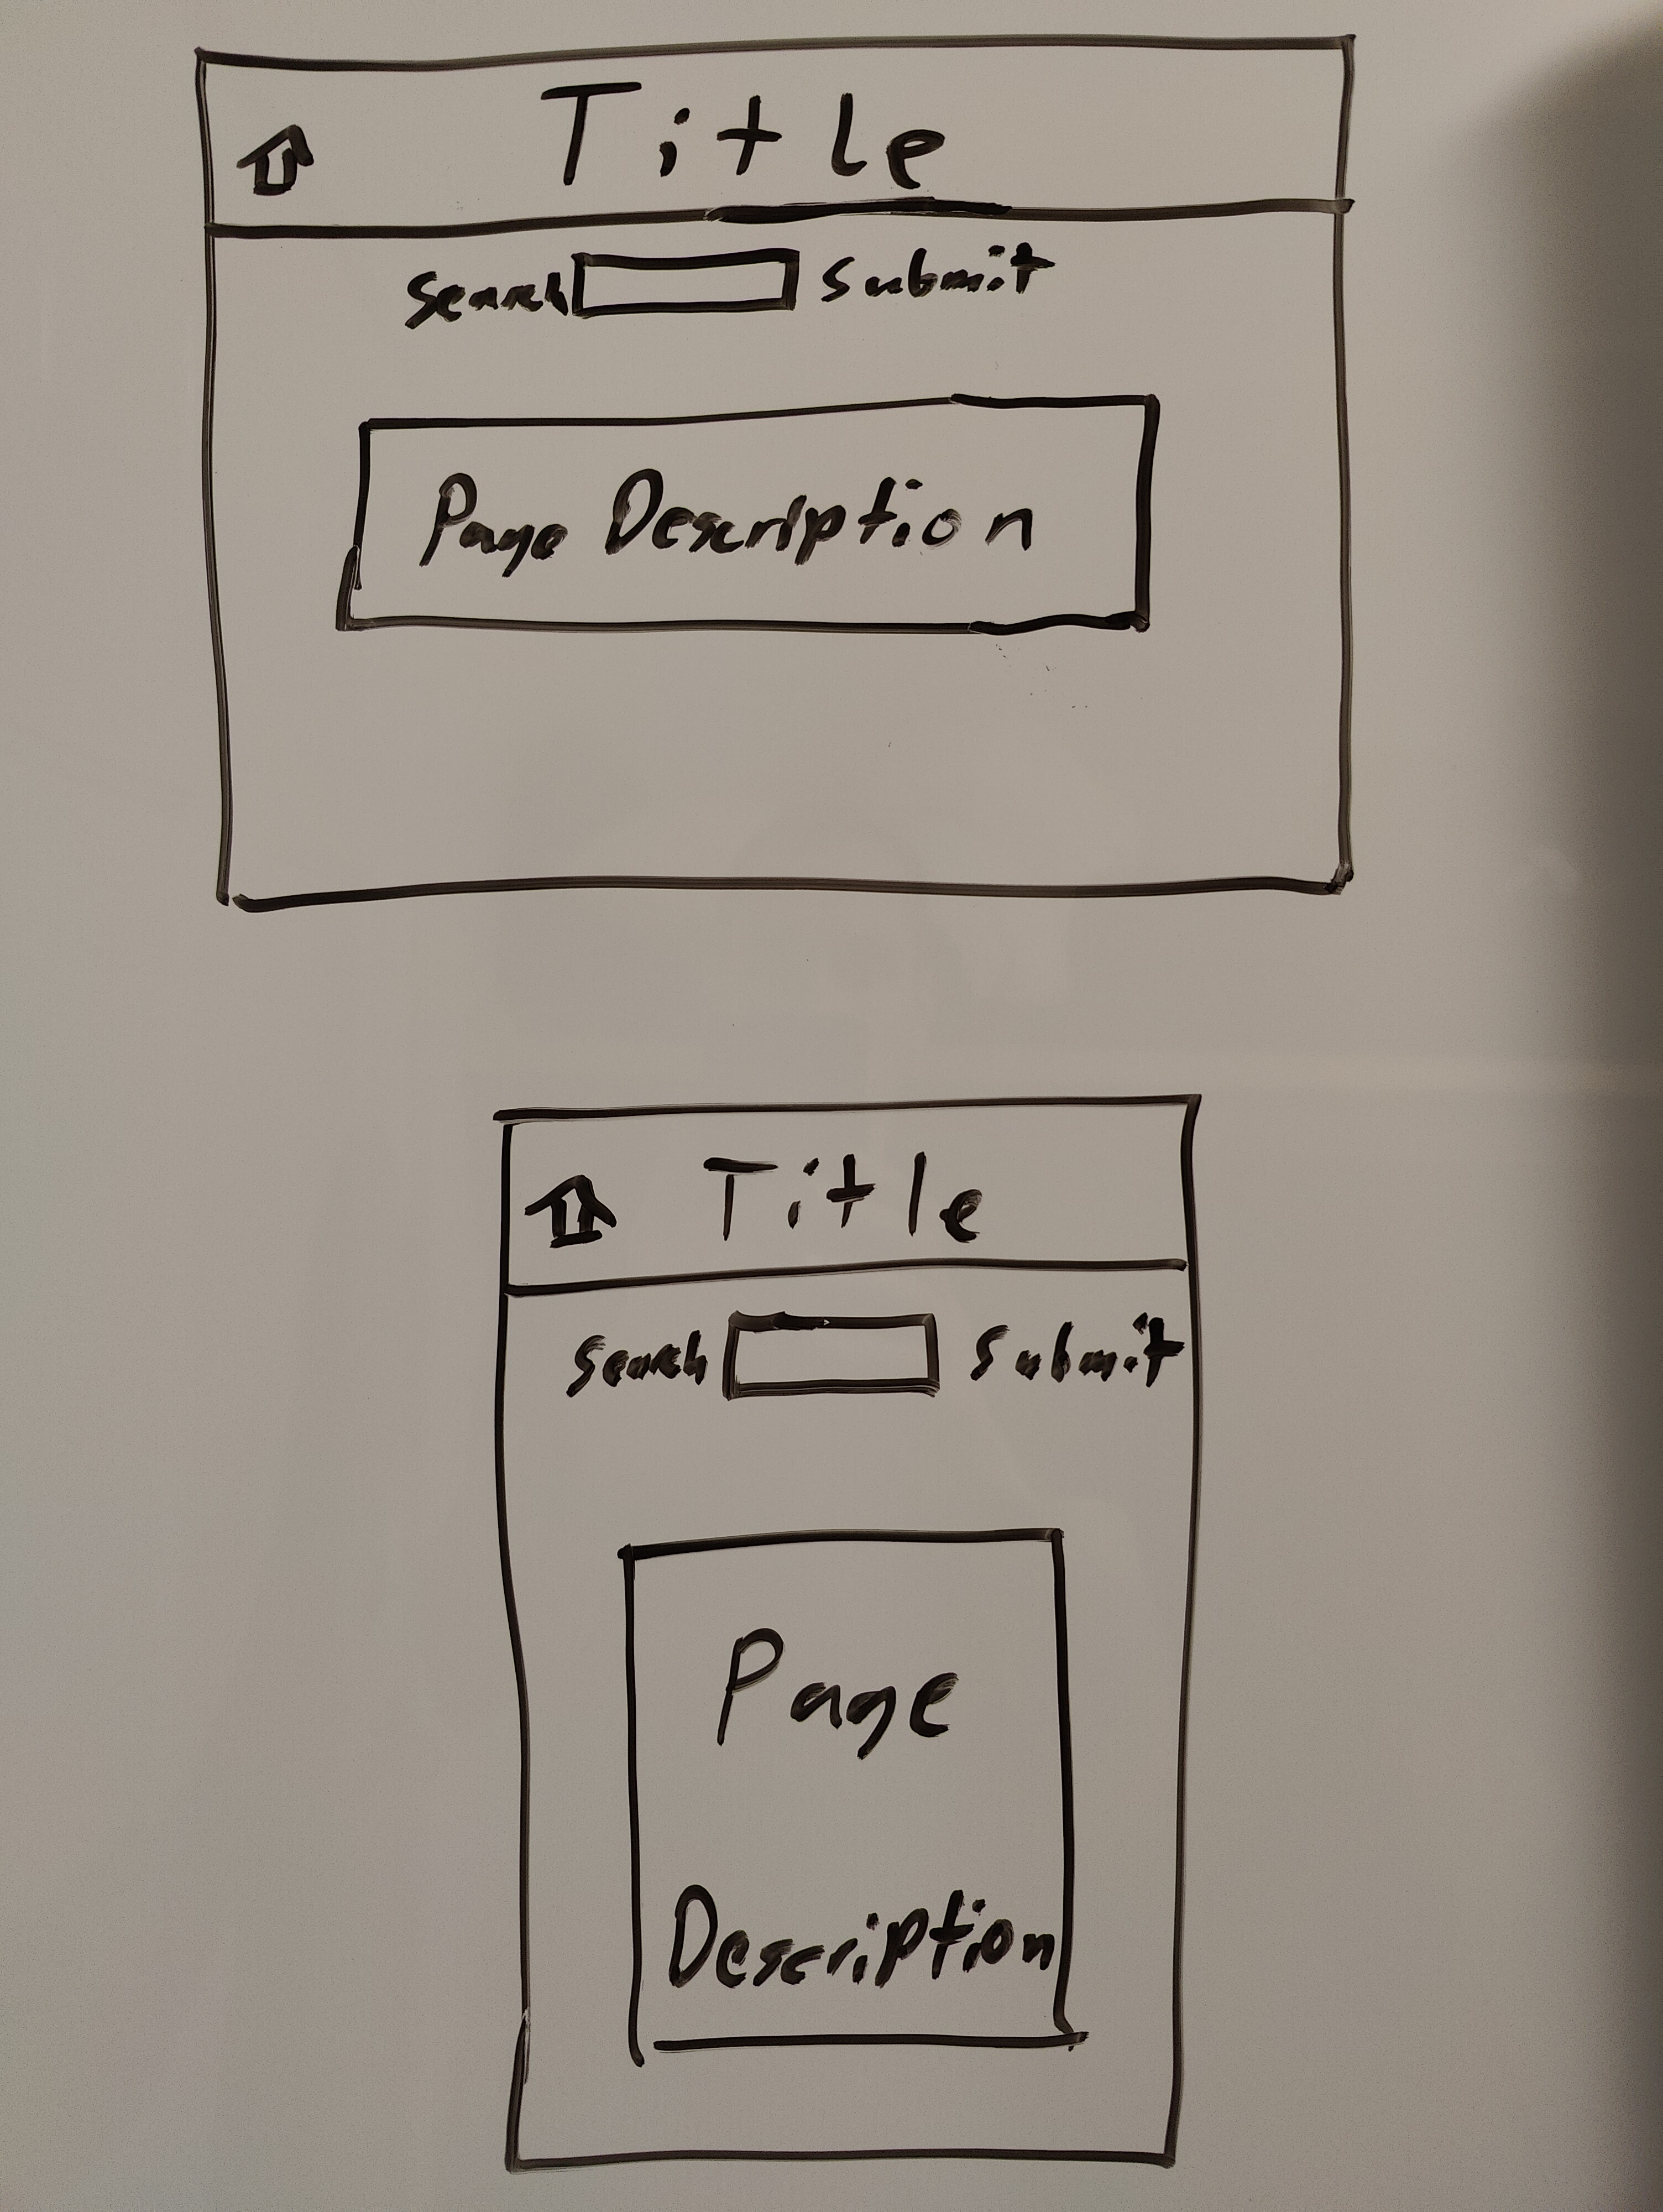 Title
Search Submit
Page Description
Title
Search Submit
Page
Description